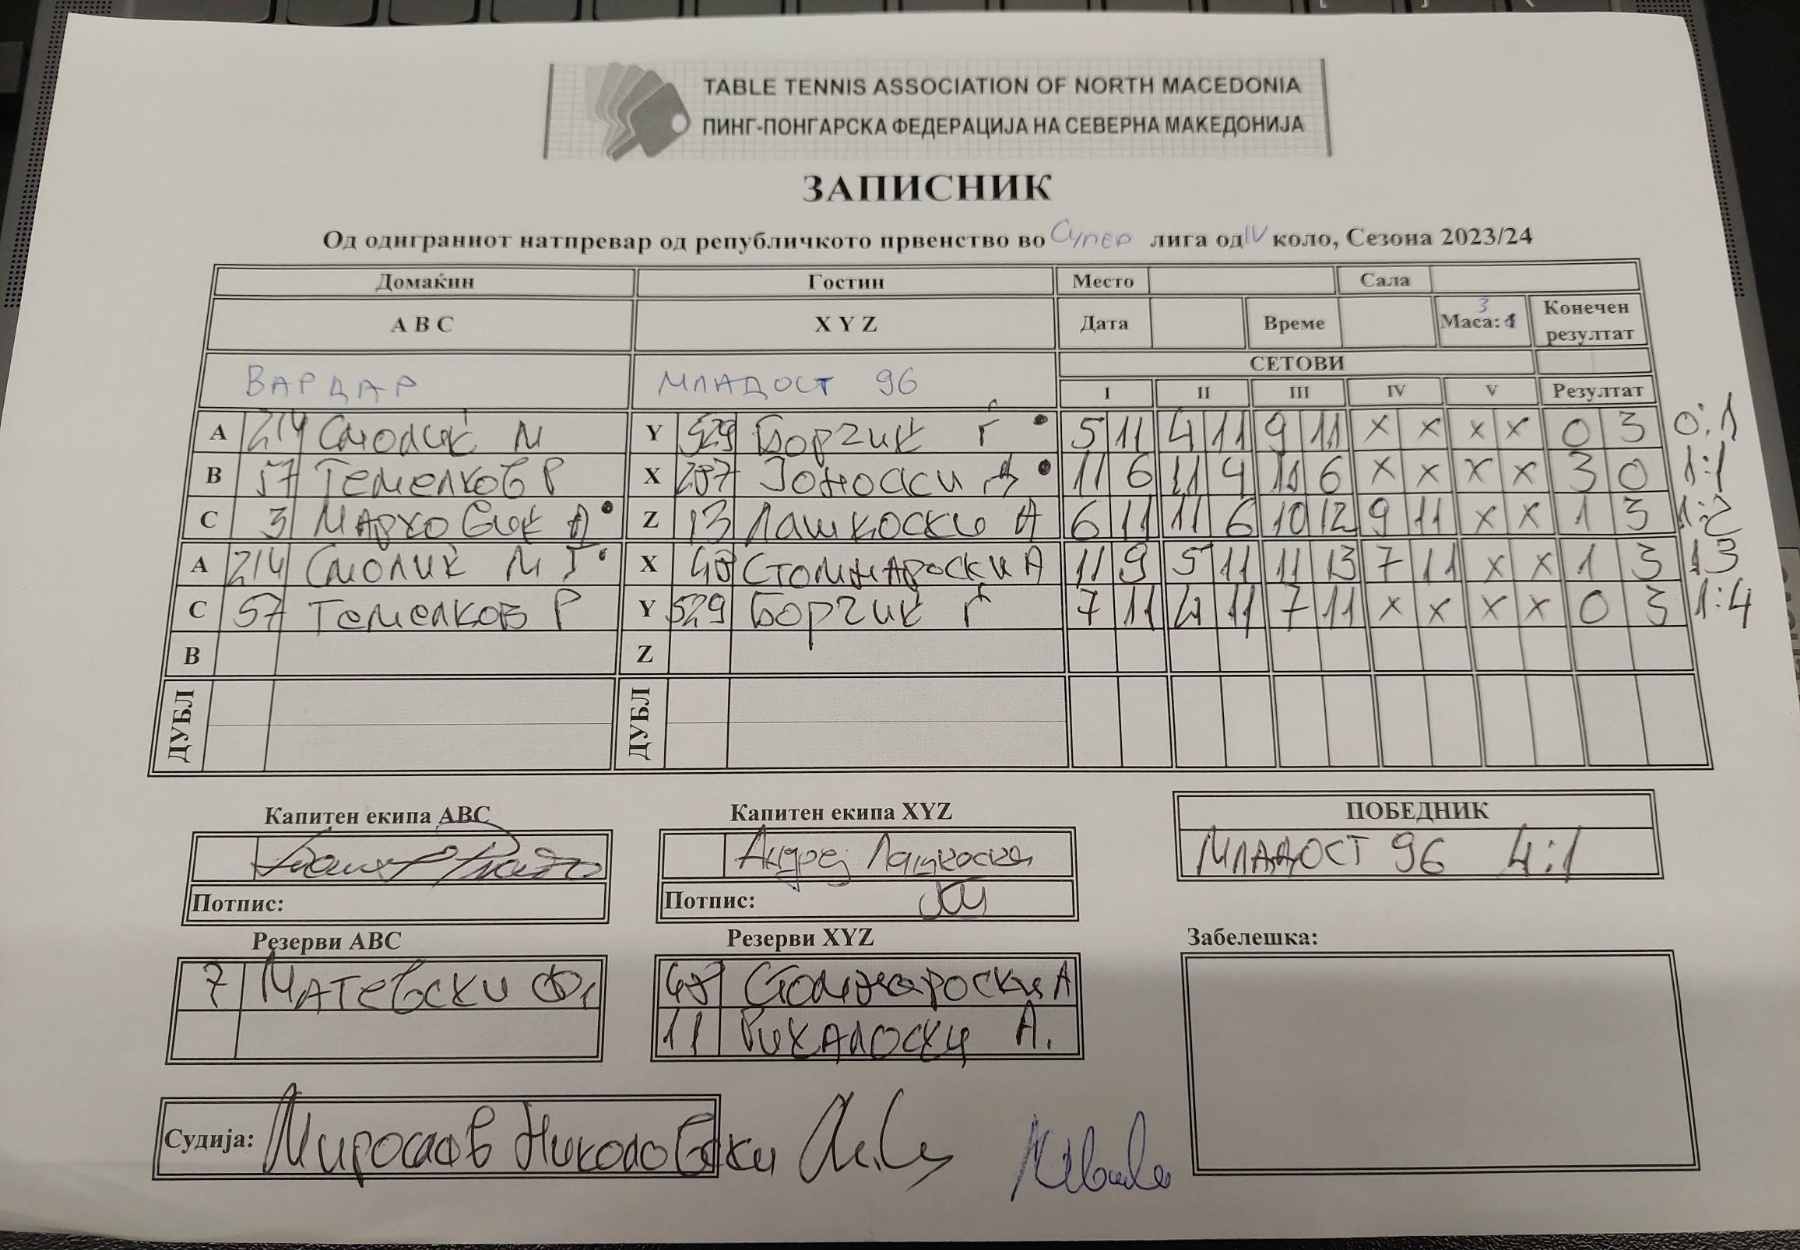 TABLE TENNIS ASSOCIATION OF NORTH MACEDONIA
ПИНГ-ПОНГАРСКА ФЕДЕРАЦИЈА НА СЕВЕРНА МАКЕДОНИЈА
ЗАПИСНИК
Од одиграниот натпревар од републичкото првенство во Супер лига од IV коло, Сезона 2023/24
Домаќин Гостин Место Сала
A B C X Y Z Дата Време Маса: 3 Конечен резултат
ВАРДАР МЛАДОСТ 96 СЕТОВИ
I II III IV V Резултат
A 214 Смолиќ М Y 529 Боргиќ Г 5 11 4 11 9 11 x x x x 0 3 0:1
B 57 Темелков Р X 287 Јоноски 11 6 11 4 11 6 x x x x 3 0 1:1
C 3 Марковиќ А Z 13 Лашкоски А 6 11 11 6 10 12 9 11 x x 1 3 1:2
A 214 Смолиќ М X 48 Стомнароски А 11 9 5 11 11 13 7 11 x x 1 3 1:3
C 57 Темелков Р Y 529 Боргиќ Г 7 11 4 11 7 11 x x x x 0 3 1:4
B Z
ДУБЛ ДУБЛ
Капитен екипа ABC Капитен екипа XYZ ПОБЕДНИК
Андреј Лашкоски МЛАДОСТ 96 4:1
Потпис: Потпис:
Резерви ABC Резерви XYZ Забелешка:
7 Матевски Ф. 48 Стомнароски А
11 Рикалоски А.
Судија: Мирослав Николовски